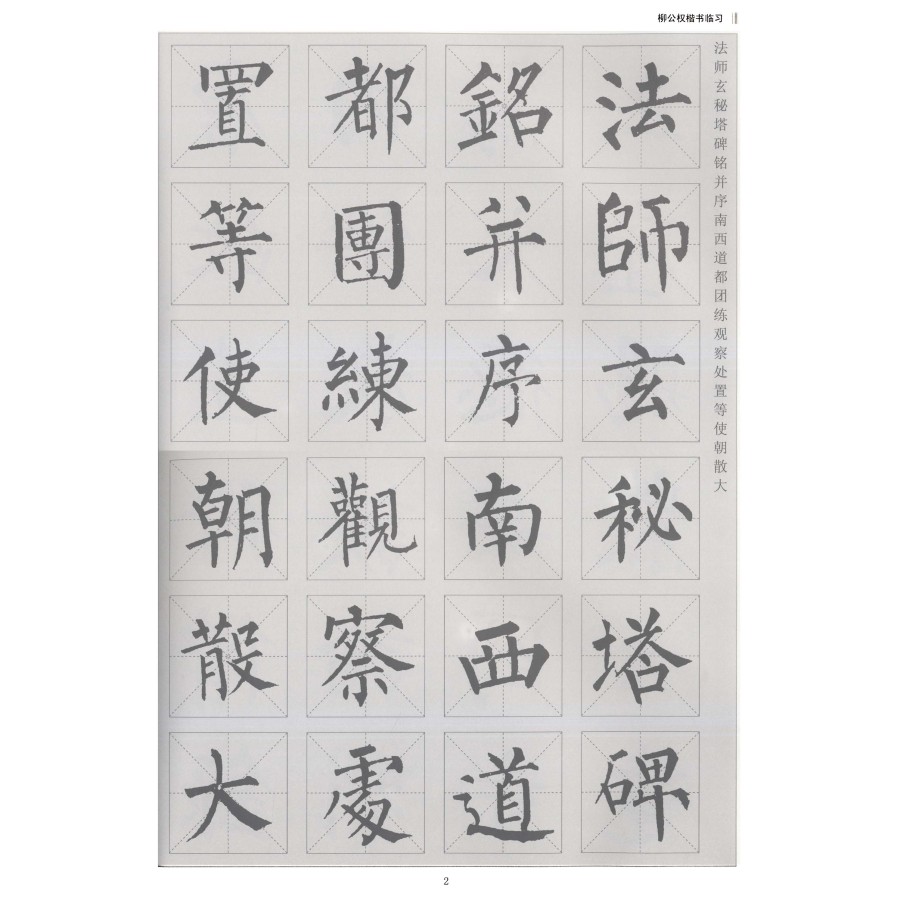 柳公权楷书临习
法师玄秘塔碑铭并序南西道都团练观察处置等使朝散大
法師玄秘塔碑
銘并序南西道
都團練觀察處
置等使朝散大
2